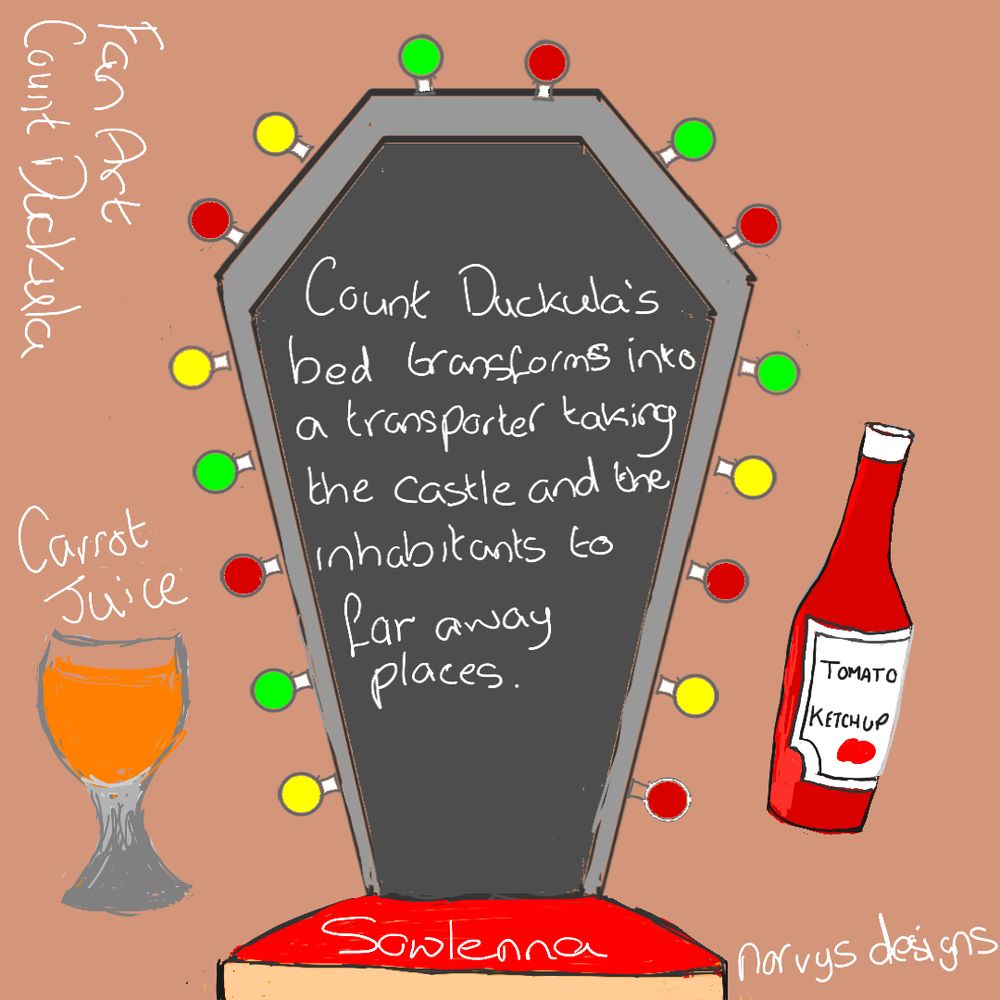 Fan Art
Count Duckula
Count Duckula's
bed transforms into
a transporter taking
the castle and the
inhabitants to
far away
places.
Carrot
Juice
TOMATO
KETCHUP
Sowlenna
norvys designs